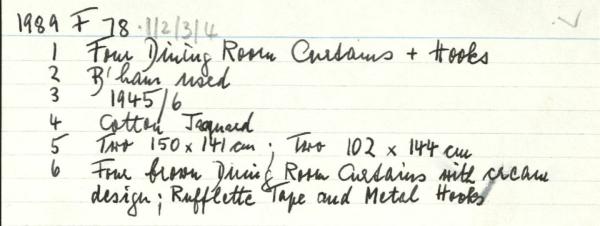 1989 F 78 ·1/2/3/4
1 Four Dining Room Curtains + Hooks
2 B'ham used
3 1945/6
4 Cotton Jaquard
5 Two 150 x 141 cm ; Two 102 x 144 cm
6 Four brown Dining Room Curtains with cream
design ; Rufflette Tape and Metal Hooks